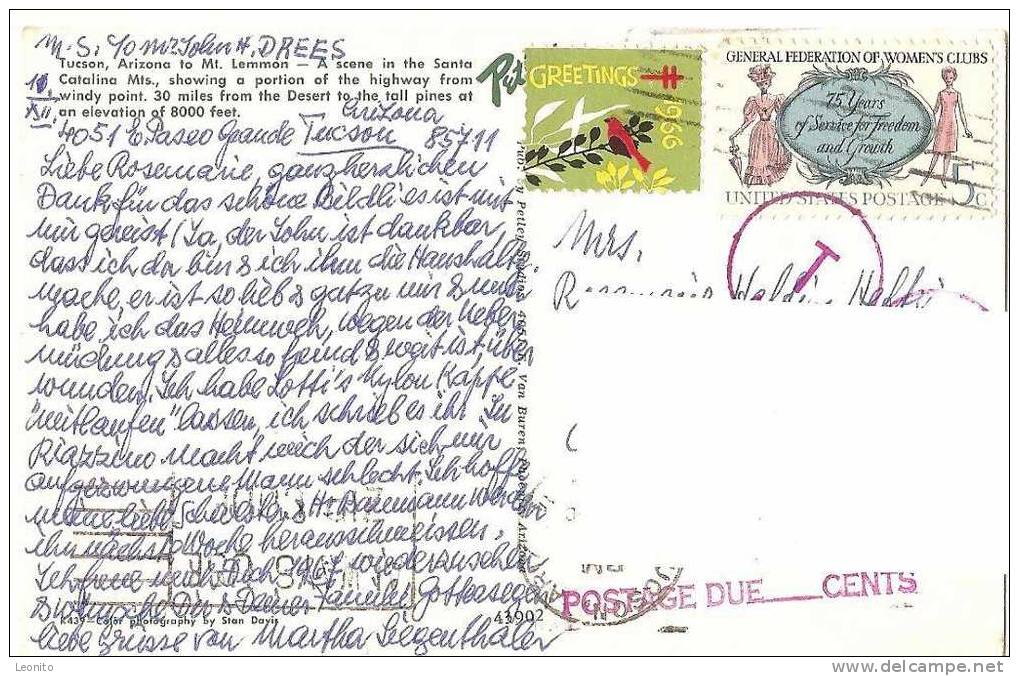 M.S. c/o Mr John H. DREES
Tucson, Arizona to Mt. Lemmon — A scene in the Santa
Catalina Mts., showing a portion of the highway from
windy point. 30 miles from the Desert to the tall pines at
an elevation of 8000 feet.
10.
XII.
Arizona
4051 E. Paseo Grande Tucson 85711
Liebe Rosemarie, ganz herzlichen
Dank für das schöne Bildli es ist mit
mir gereist! Ja, der John ist dankbar,
dass ich da bin & ich ihm die Haushaltg.
mache, er ist so lieb & gat zu mir & nun
habe ich das Heimweh, wegen der Ueber
müdung & alles so fremd & weit ist, über
wunden. Ich habe Lotti's Nylon Kappe
"mitlaufen" lassen, ich schrieb es ihr. In
Riazzino macht mich der sich mir
aufgezwungene Mann schlecht. Ich hoffe
meine liebe Schwester & Hr Baumann werden
ihn nächste Woche herausschmeissen.
Ich freue mich Dich 1967 wiederzusehen
& wünsche Dir & Deiner Familie Gottessegen
liebe Grüsse von Martha Siegenthaler
K439—Color photography by Stan Davis
43902
Petley Studios, 4051 E. Van Buren, Phoenix, Arizona
GREETINGS
1966
GENERAL FEDERATION OF WOMEN'S CLUBS
75 Years
of Service for Freedom
and Growth
UNITED STATES POSTAGE 5c
T
Mrs.
POSTAGE DUE ___ CENTS
Leonito
http://www.delcampe.net